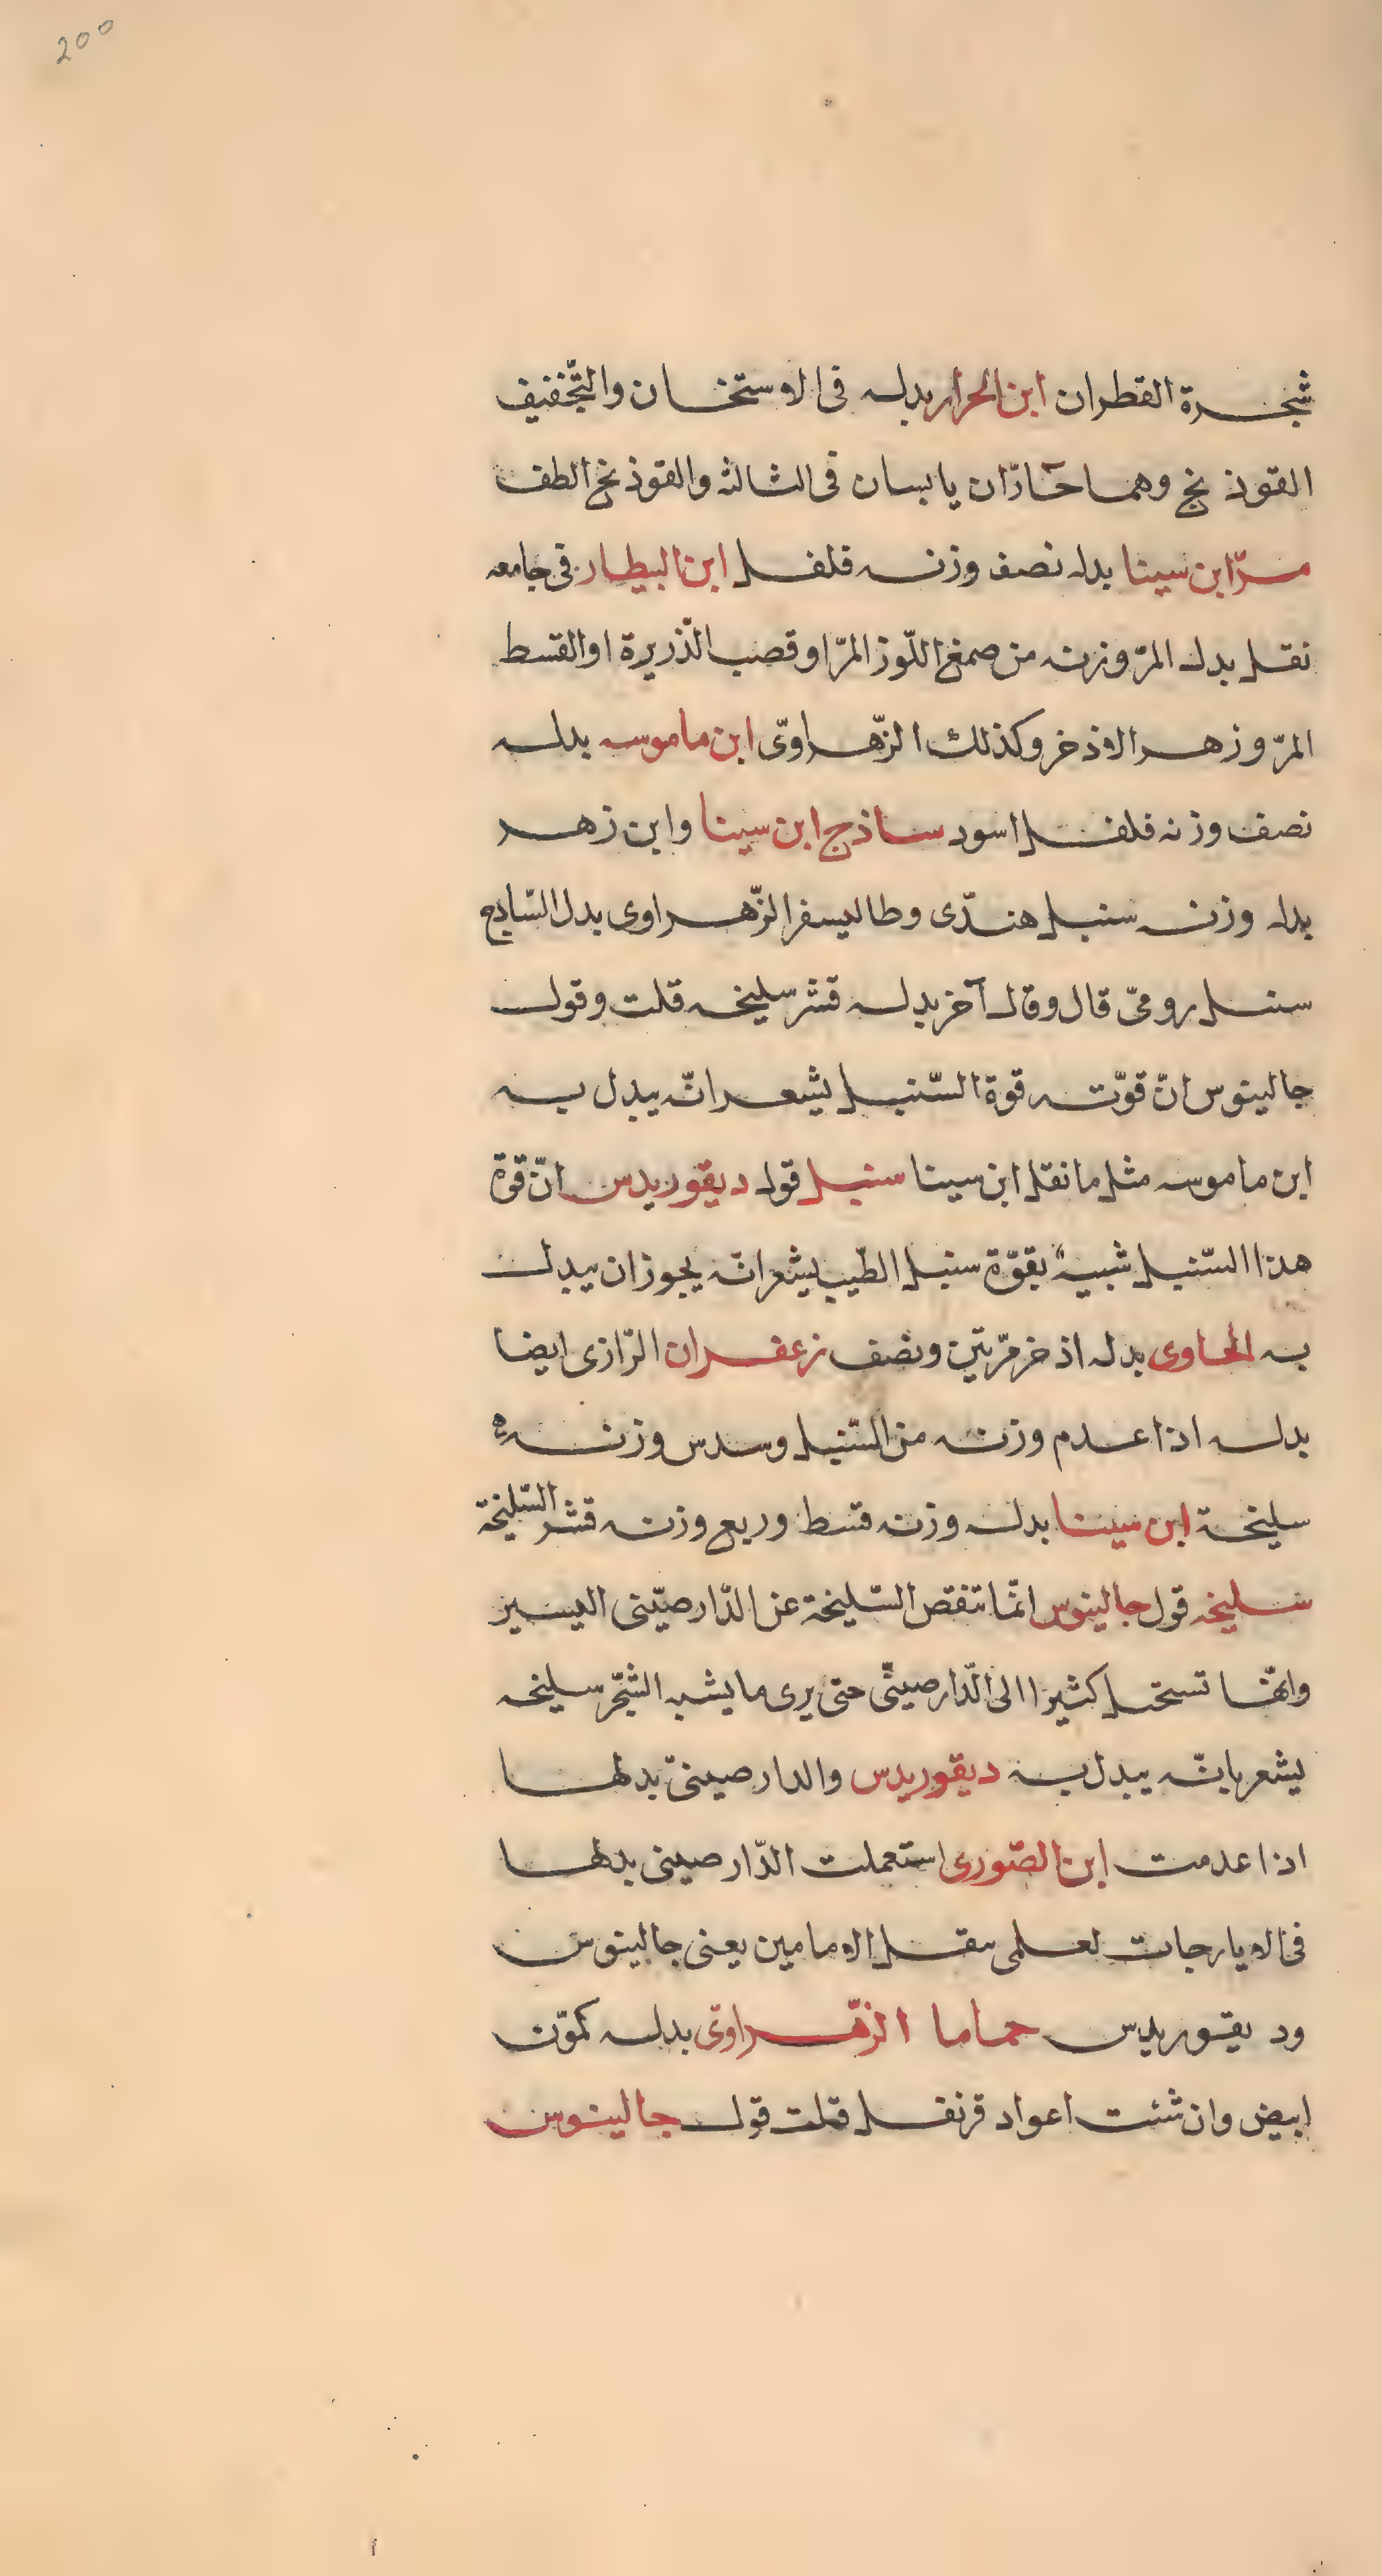 200
شجرة القطران ابن الحرار بدله فى الاستخان والتجفيف
القوذنج وهما حارّان يابسان فى الثالثه والقوذنج الطف
مرّ ابن سينا بدله نصف وزنه فلفل ابن البيطار فى جامعه
نقل بدل المرّ وزنه من صمغ اللّوز المرّ او قصب الذّريرة او القسط
المرّ وزهر الاذخر وكذلك الزّهراوىّ ابن ماموسه بدله
نصف وزنه فلفل اسود ساذج ابن سينا وابن زهر
بدله وزنه سنبل هندّى وطاليسفر الزّهراوى بدل السّاذج
سنبل رومىّ قال وقال آخر بدله قشر سليخه قلت وقول
جالينوس انّ قوّته قوة السّنبل يشعر انّه يبدل به
ابن ماموسه مثل ما نقل ابن سينا سنبل قول ديقوريدس انّ قوة
هذا السّنبل شبيه بقوّة سنبل الطّيب يشعر انّه يجوز ان يبدل
به الحاوى بدله اذخر مرّتين ونصف زعفران الرّازى ايضا
بدله اذا عدم وزنه من السّنبل وسدس وزنه
سليخة ابن سينا بدله وزنه قسط وربع وزنه قشر السّليخة
سليخه قول جالينوس انّما تنقص السّليخة عن الدّارصيّنى اليسير
وانّها تستحل كثيرا الى الدّارصينّى حتى يرى ما يشبه الشّجر سليخه
يشعر بانّه يبدل به ديقوريدس والدارصينىّ بدلها
اذا عدمت ابن الصّورى استعملت الدّارصينى بدلها
فى الايارجات لعلمى بنقل الامامين يعنى جالينوس
وديقوريدس حماما الزّهراوىّ بدله كموّن
ابيض وان شئت اعواد قرنفل قلت قول جالينوس